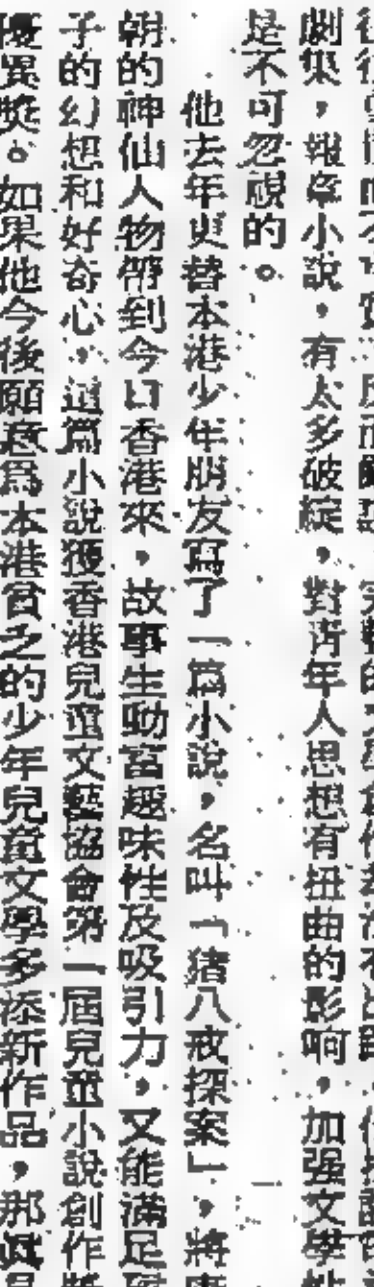 劇集，報章小說，有太多破綻，對青年人思想有扭曲的影响，加强文學
是不可忽視的。
他去年更替本港少年朋友寫了一篇小說，名叫「猪八戒探案」，將
朝的神仙人物帶到今日香港來，故事生動富趣味性及吸引力，又能滿足
子的幻想和好奇心，這篇小說獲香港兒童文藝協會第一屆兒童小說創作獎
優異獎。如果他今後願意爲本港貧乏的少年兒童文學多添新作品，那真是